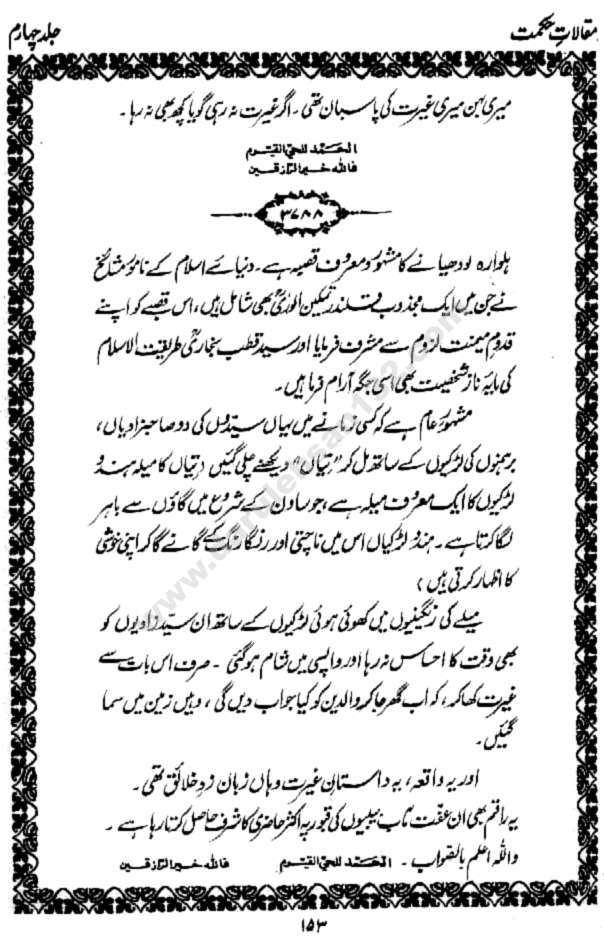 مقالاتِ حکمت
جلد چہارم
میری بہن میری غیرت کی پاسبان تھی ۔ اگر غیرت نہ رہی گویا کچھ بھی نہ رہا ۔
الحمد للحی القیوم
فاللہ خیر الرازقین
۳۷۸۸
ہلوارہ لودھیانے کا مشہور و معروف قصبہ ہے ۔ دنیائے اسلام کے نامور مشائخ
نے جن میں ایک مجذوب قلندر تمکین الوریؒ بھی شامل ہیں ، اس قصبے کو اپنے
قدوم میمنت لزوم سے مشرف فرمایا اور سید قطب بخاریؒ طریقت الاسلام
کی مایۂ ناز شخصیت بھی اسی جگہ آرام فرما ہیں ۔
مشہورِ عام ہے کہ کسی زمانے میں یہاں سیّدوں کی دو صاحبزادیاں ،
برہمنوں کی لڑکیوں کے ساتھ مل کر ”تیاں“ دیکھنے چلی گئیں (تیاں کا میلہ ہندو
لڑکیوں کا ایک معروف میلہ ہے ، جو ساون کے شروع میں گاؤں سے باہر
لگا کرتا ہے ۔ ہندو لڑکیاں اس میں ناچتی اور رنگا رنگ کے گانے گا کر اپنی خوشی
کا اظہار کرتی ہیں )
میلے کی رنگینیوں میں کھوئی ہوئی لڑکیوں کے ساتھ ان سیّد زادیوں کو
بھی وقت کا احساس نہ رہا اور واپسی میں شام ہو گئی ۔ صرف اس بات سے
غیرت کھا کر ، کہ اب گھر جا کر والدین کو کیا جواب دیں گی ، وہیں زمین میں سما
گئیں ۔
اور یہ واقعہ ، یہ داستانِ غیرت وہاں زبان زدِ خلائق تھی ۔
یہ راقم بھی ان عفّت مآب بیبیوں کی قبور پہ اکثر حاضری کا شرف حاصل کرتا رہا ہے ۔
واللہ اعلم بالصواب ۔ الحمد للحی القیوم فاللہ خیر الرازقین
۱۵۳